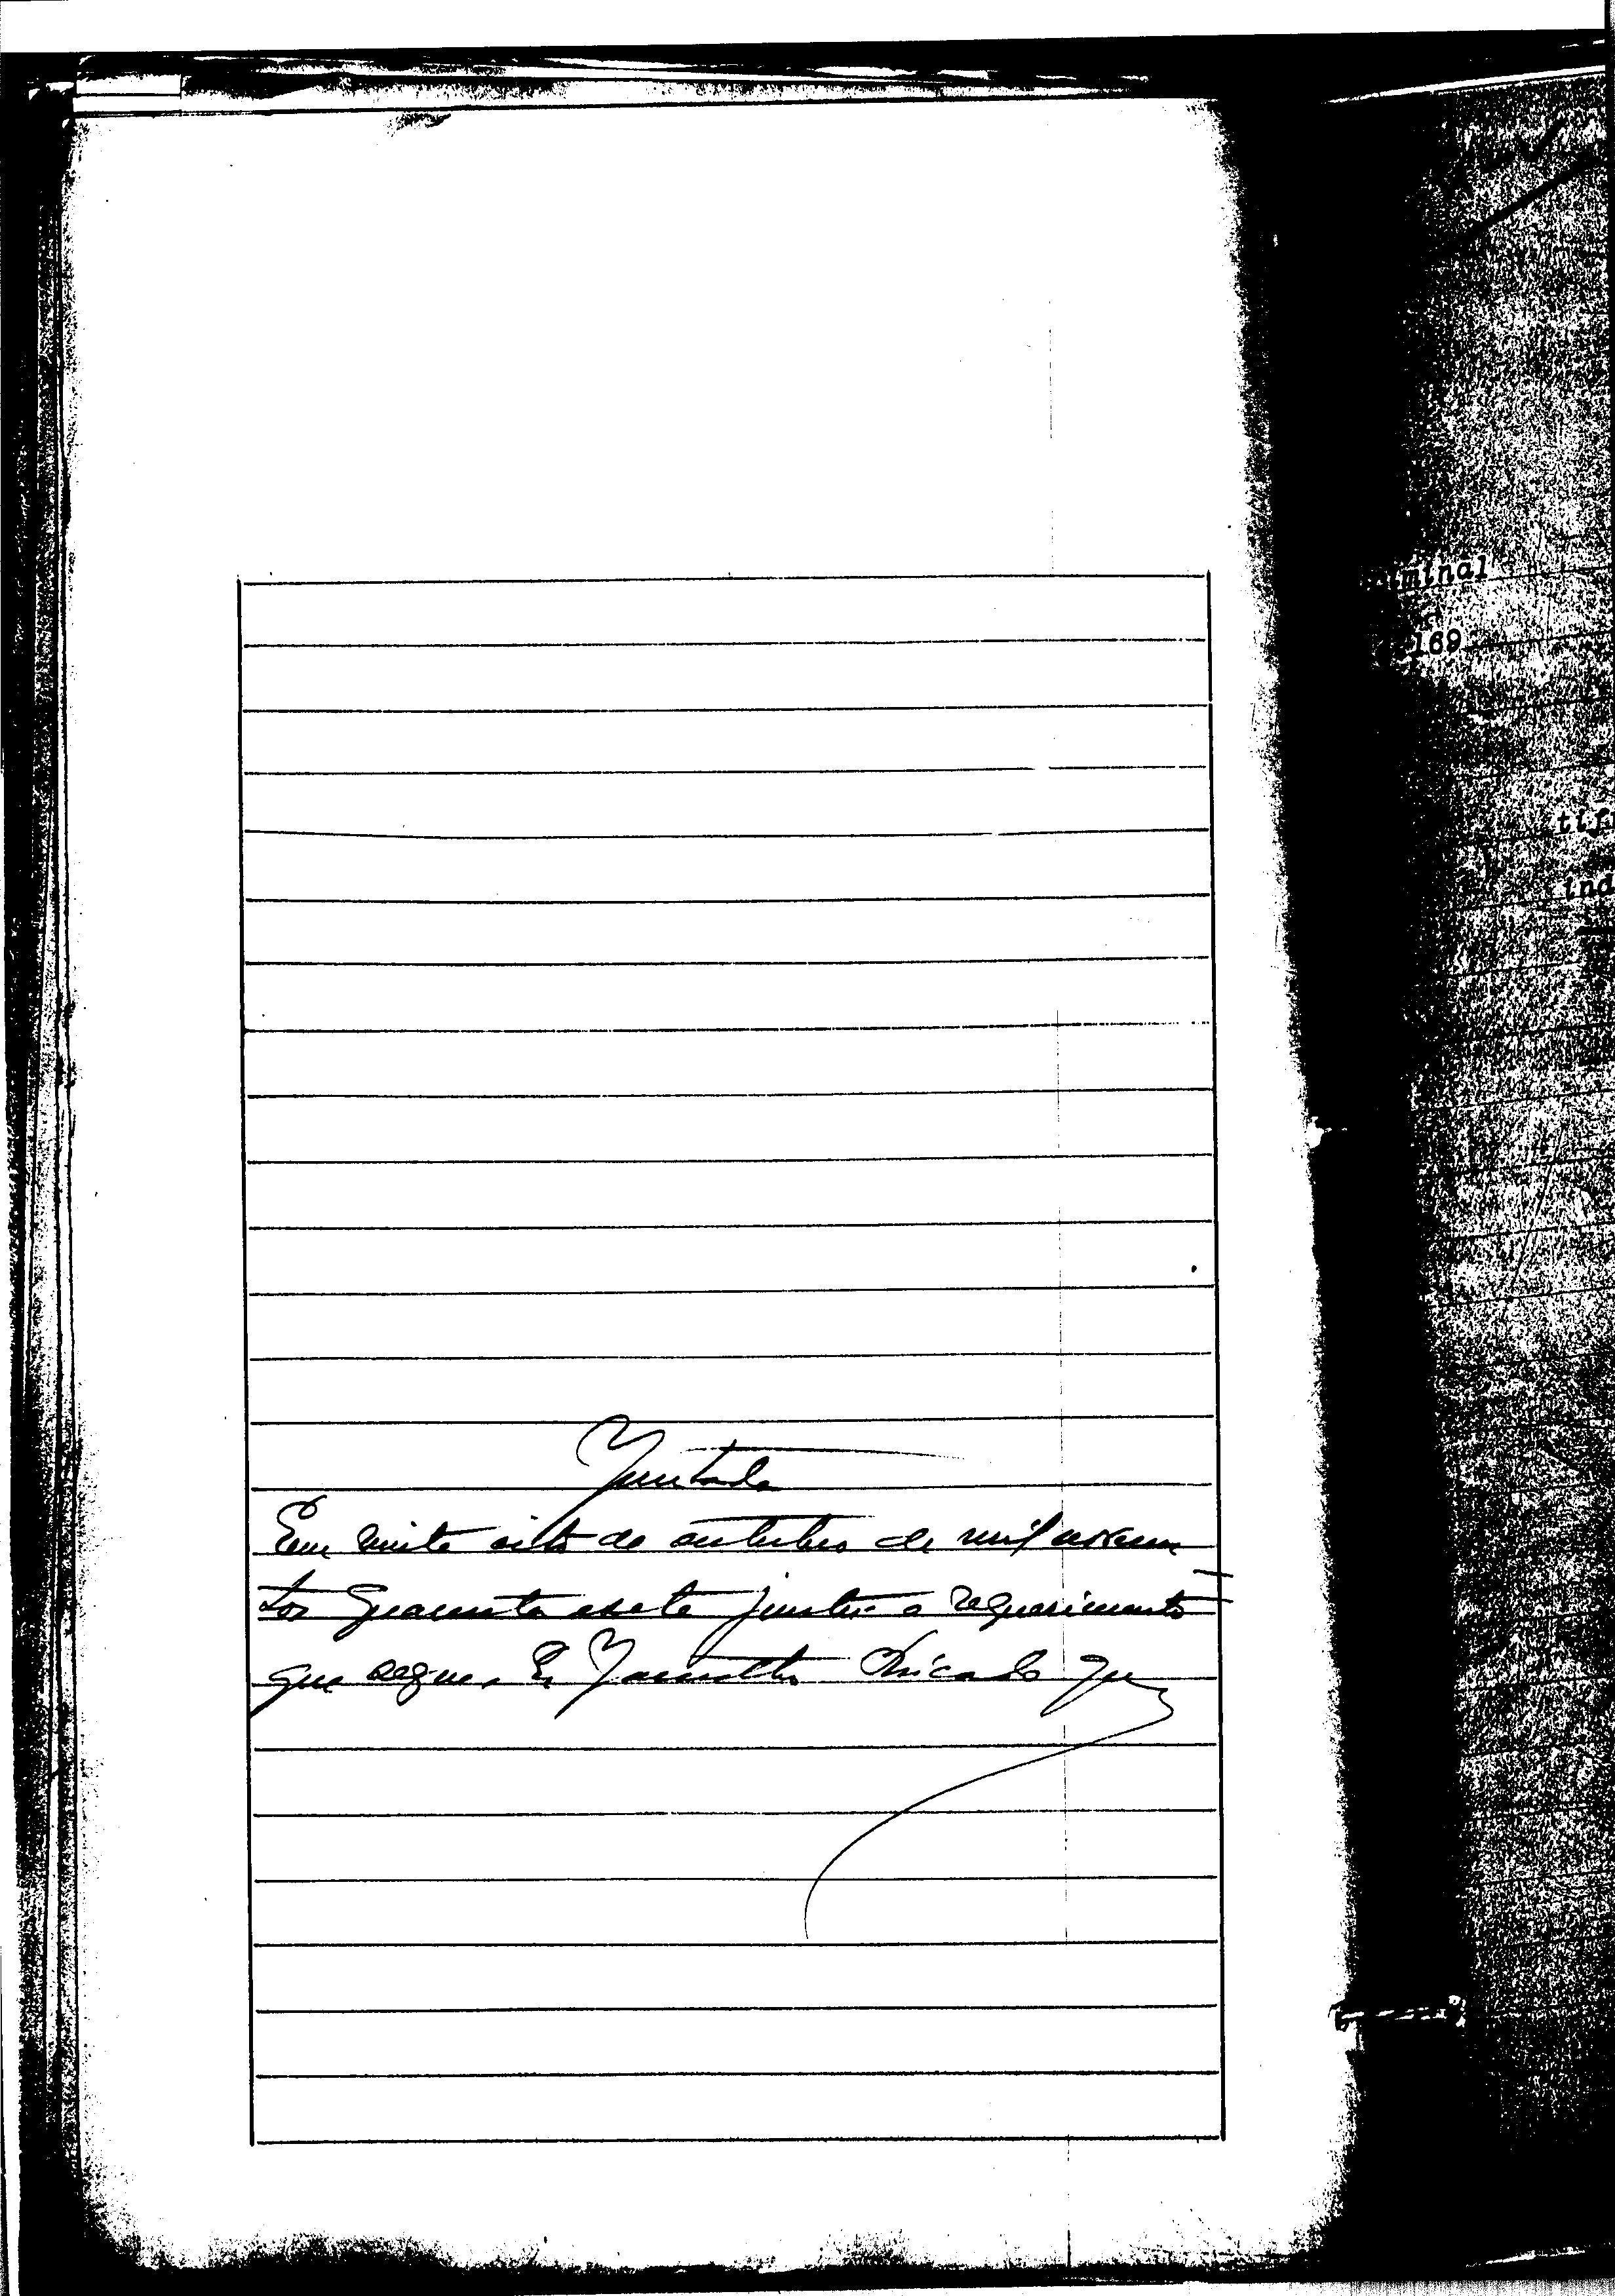 Juntada
Em vinte oito de outubro de mil novecen
tos quarenta e sete junto o requerimento
que segue. E
iminal
169
ind